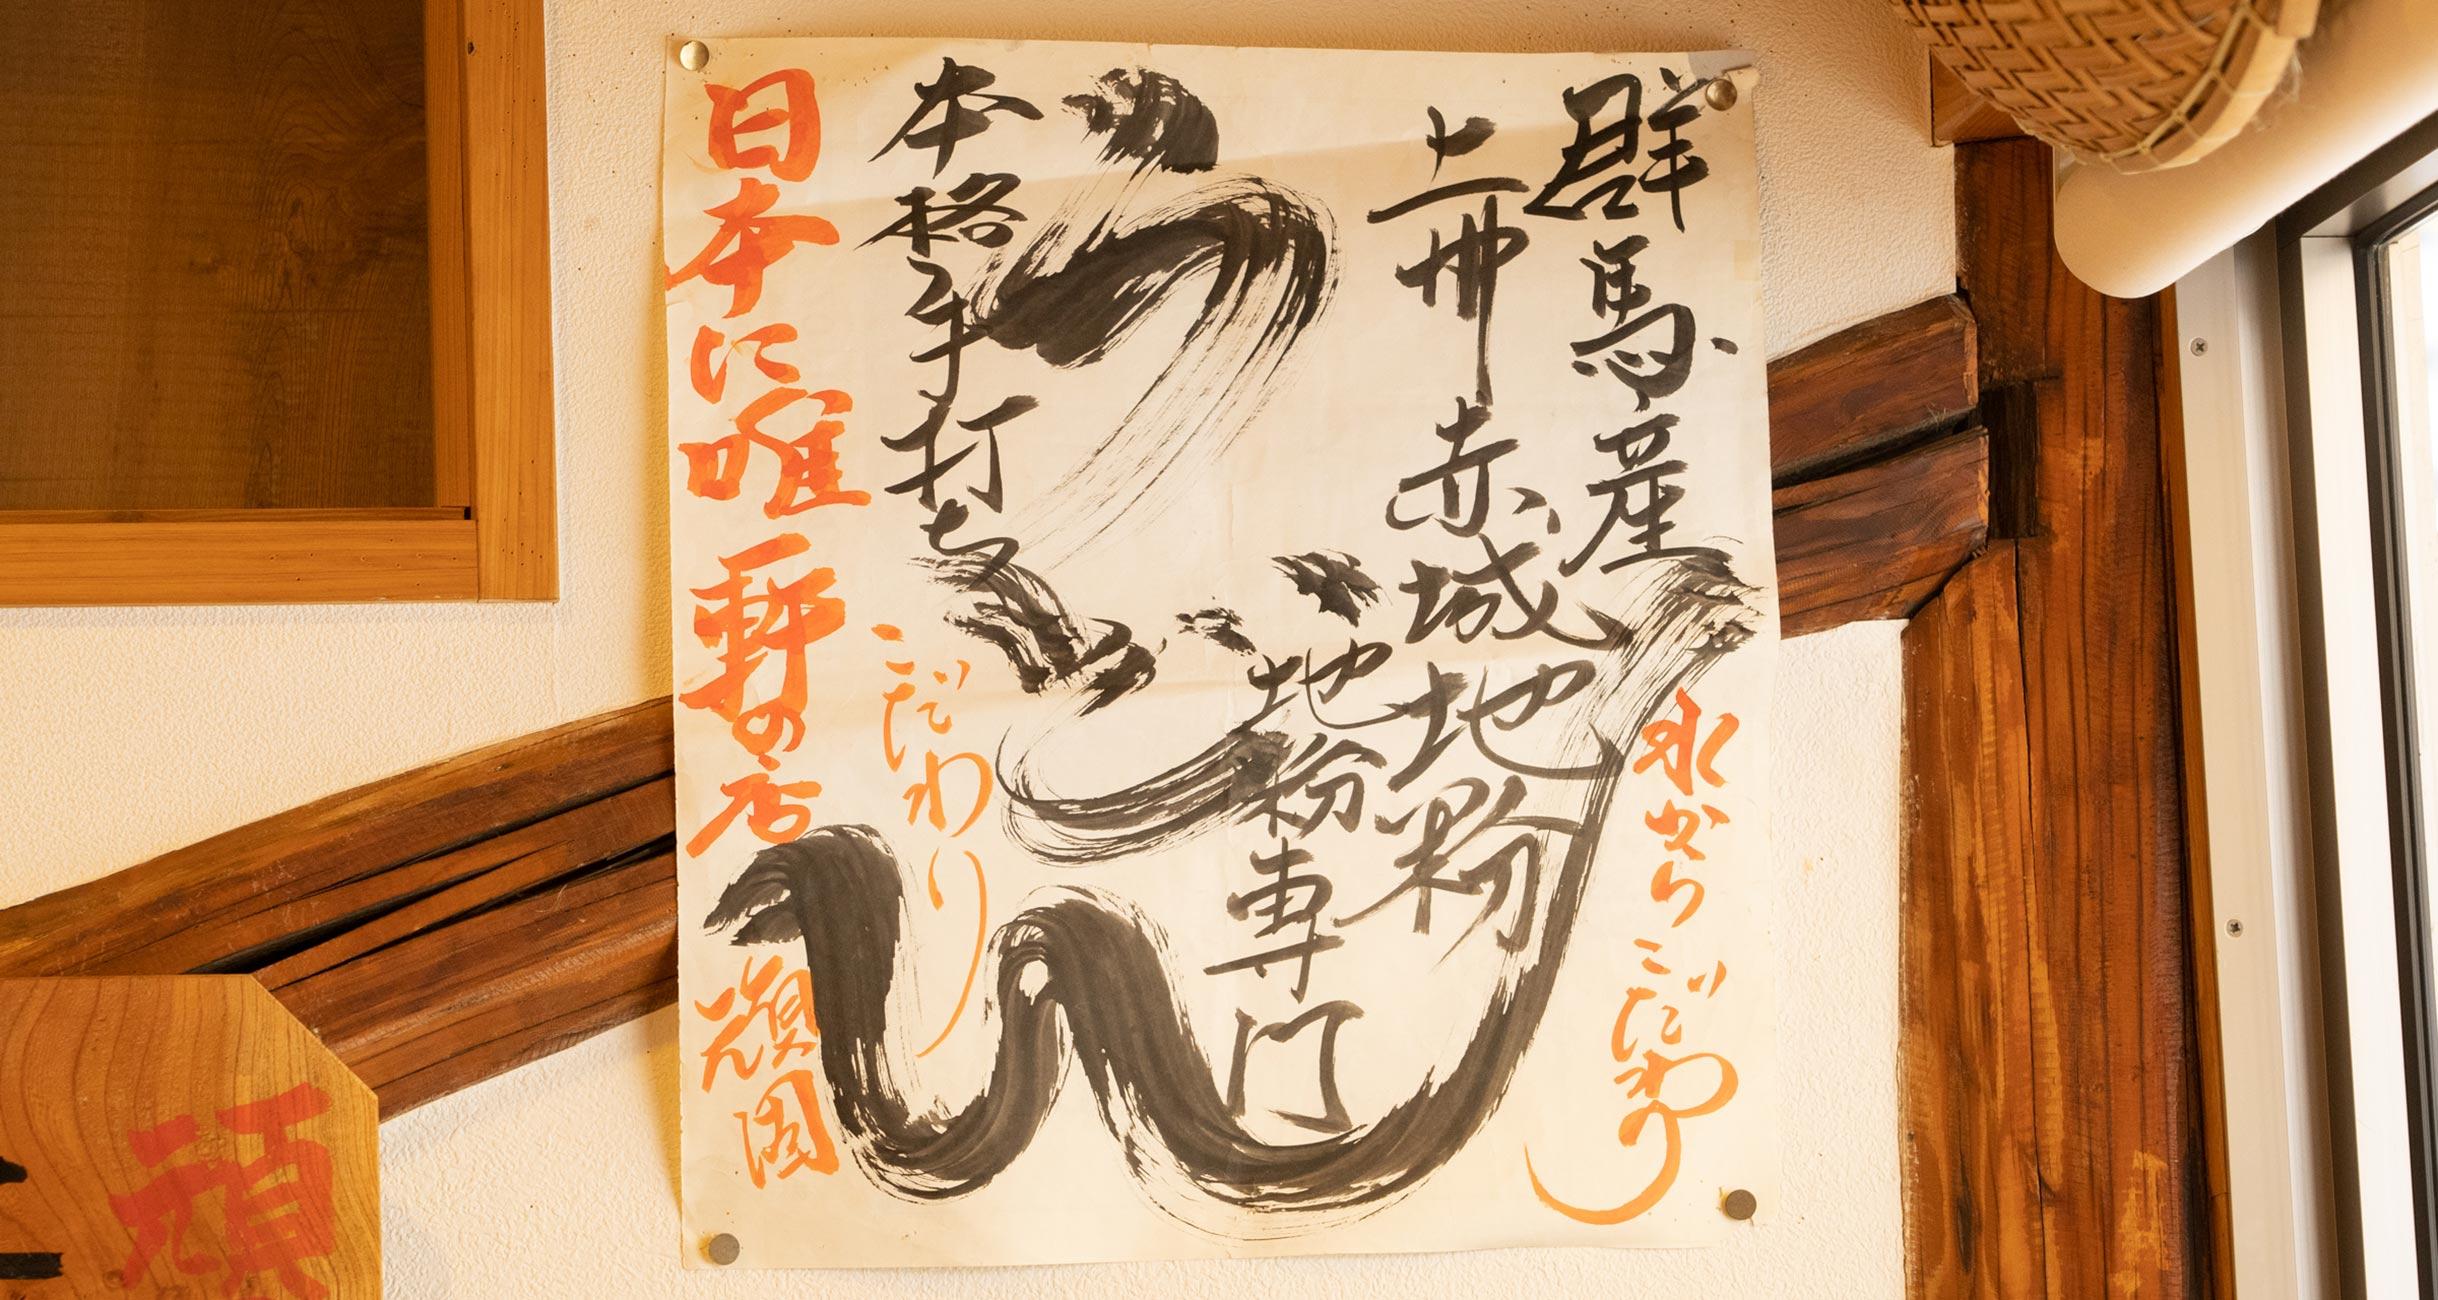 群馬産
上州赤城地粉
水からこだわり
地粉専門
うどん
本格手打ち
こだわり
日本に唯一軒の店
頑固
頑